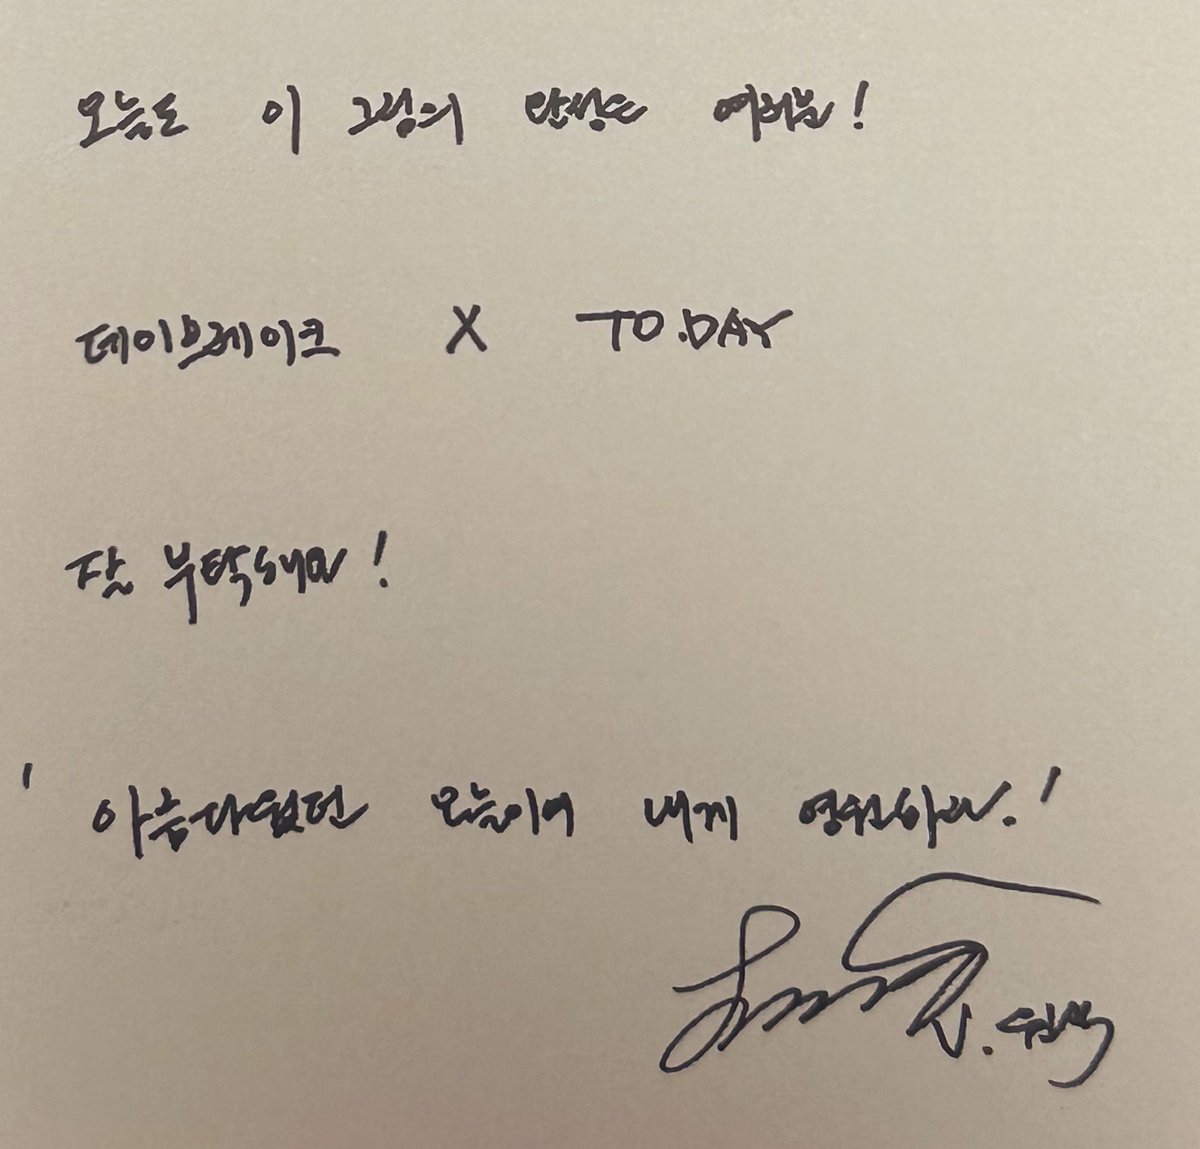 오늘도 이 그림의 완성은 여러분!
데이브레이크 X TO.DAY
잘 부탁해요!
'아름다웠던 오늘이여 내게 영원하라!'